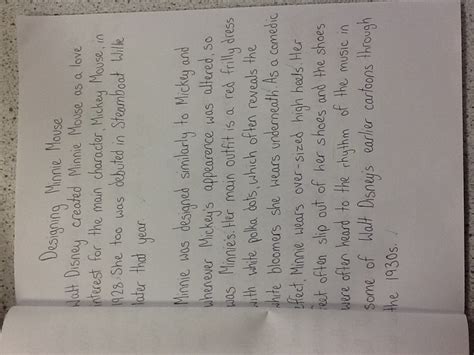 Designing Minnie Mouse
Walt Disney created Minnie Mouse as a love
interest for the main character Mickey Mouse, in
1928. She too was debuted in Steamboat Willie
later that year
Minnie was designed similarly to Mickey and
whenever Mickey's appearence was altered, so
was Minnie's. Her main outfit is a red frilly dress
with white polka dots, which often reveals the
white bloomers she wears underneath. As a comedic
effect, Minnie wears over-sized high heels. Her
feet often slip out of her shoes and the shoes
were often heard to the rhythm of the music in
some of Walt Disney's earlier cartoons through
the 1930s.